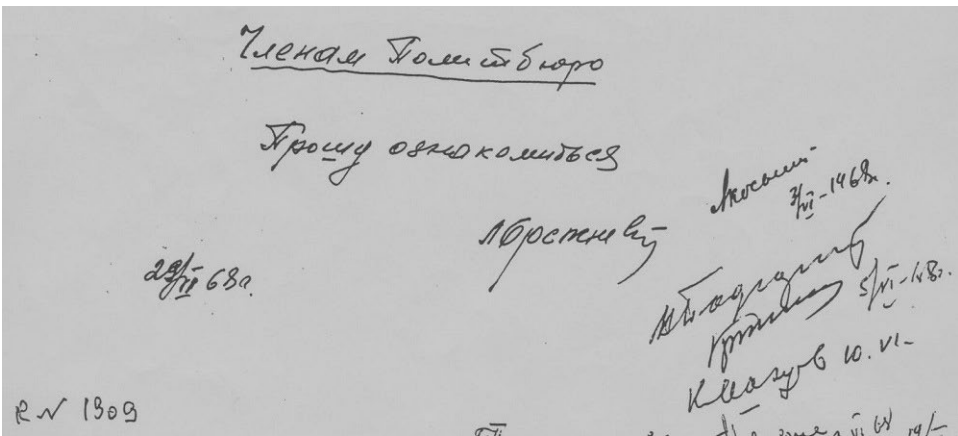 Членам Политбюро
Прошу ознакомиться
Л Брежнев
А Косыгин
3/VI-1968г.
29/ 68г.
Н Подгорный
5/VI-68г.
К Мазуров 10.VI-
К № 1909